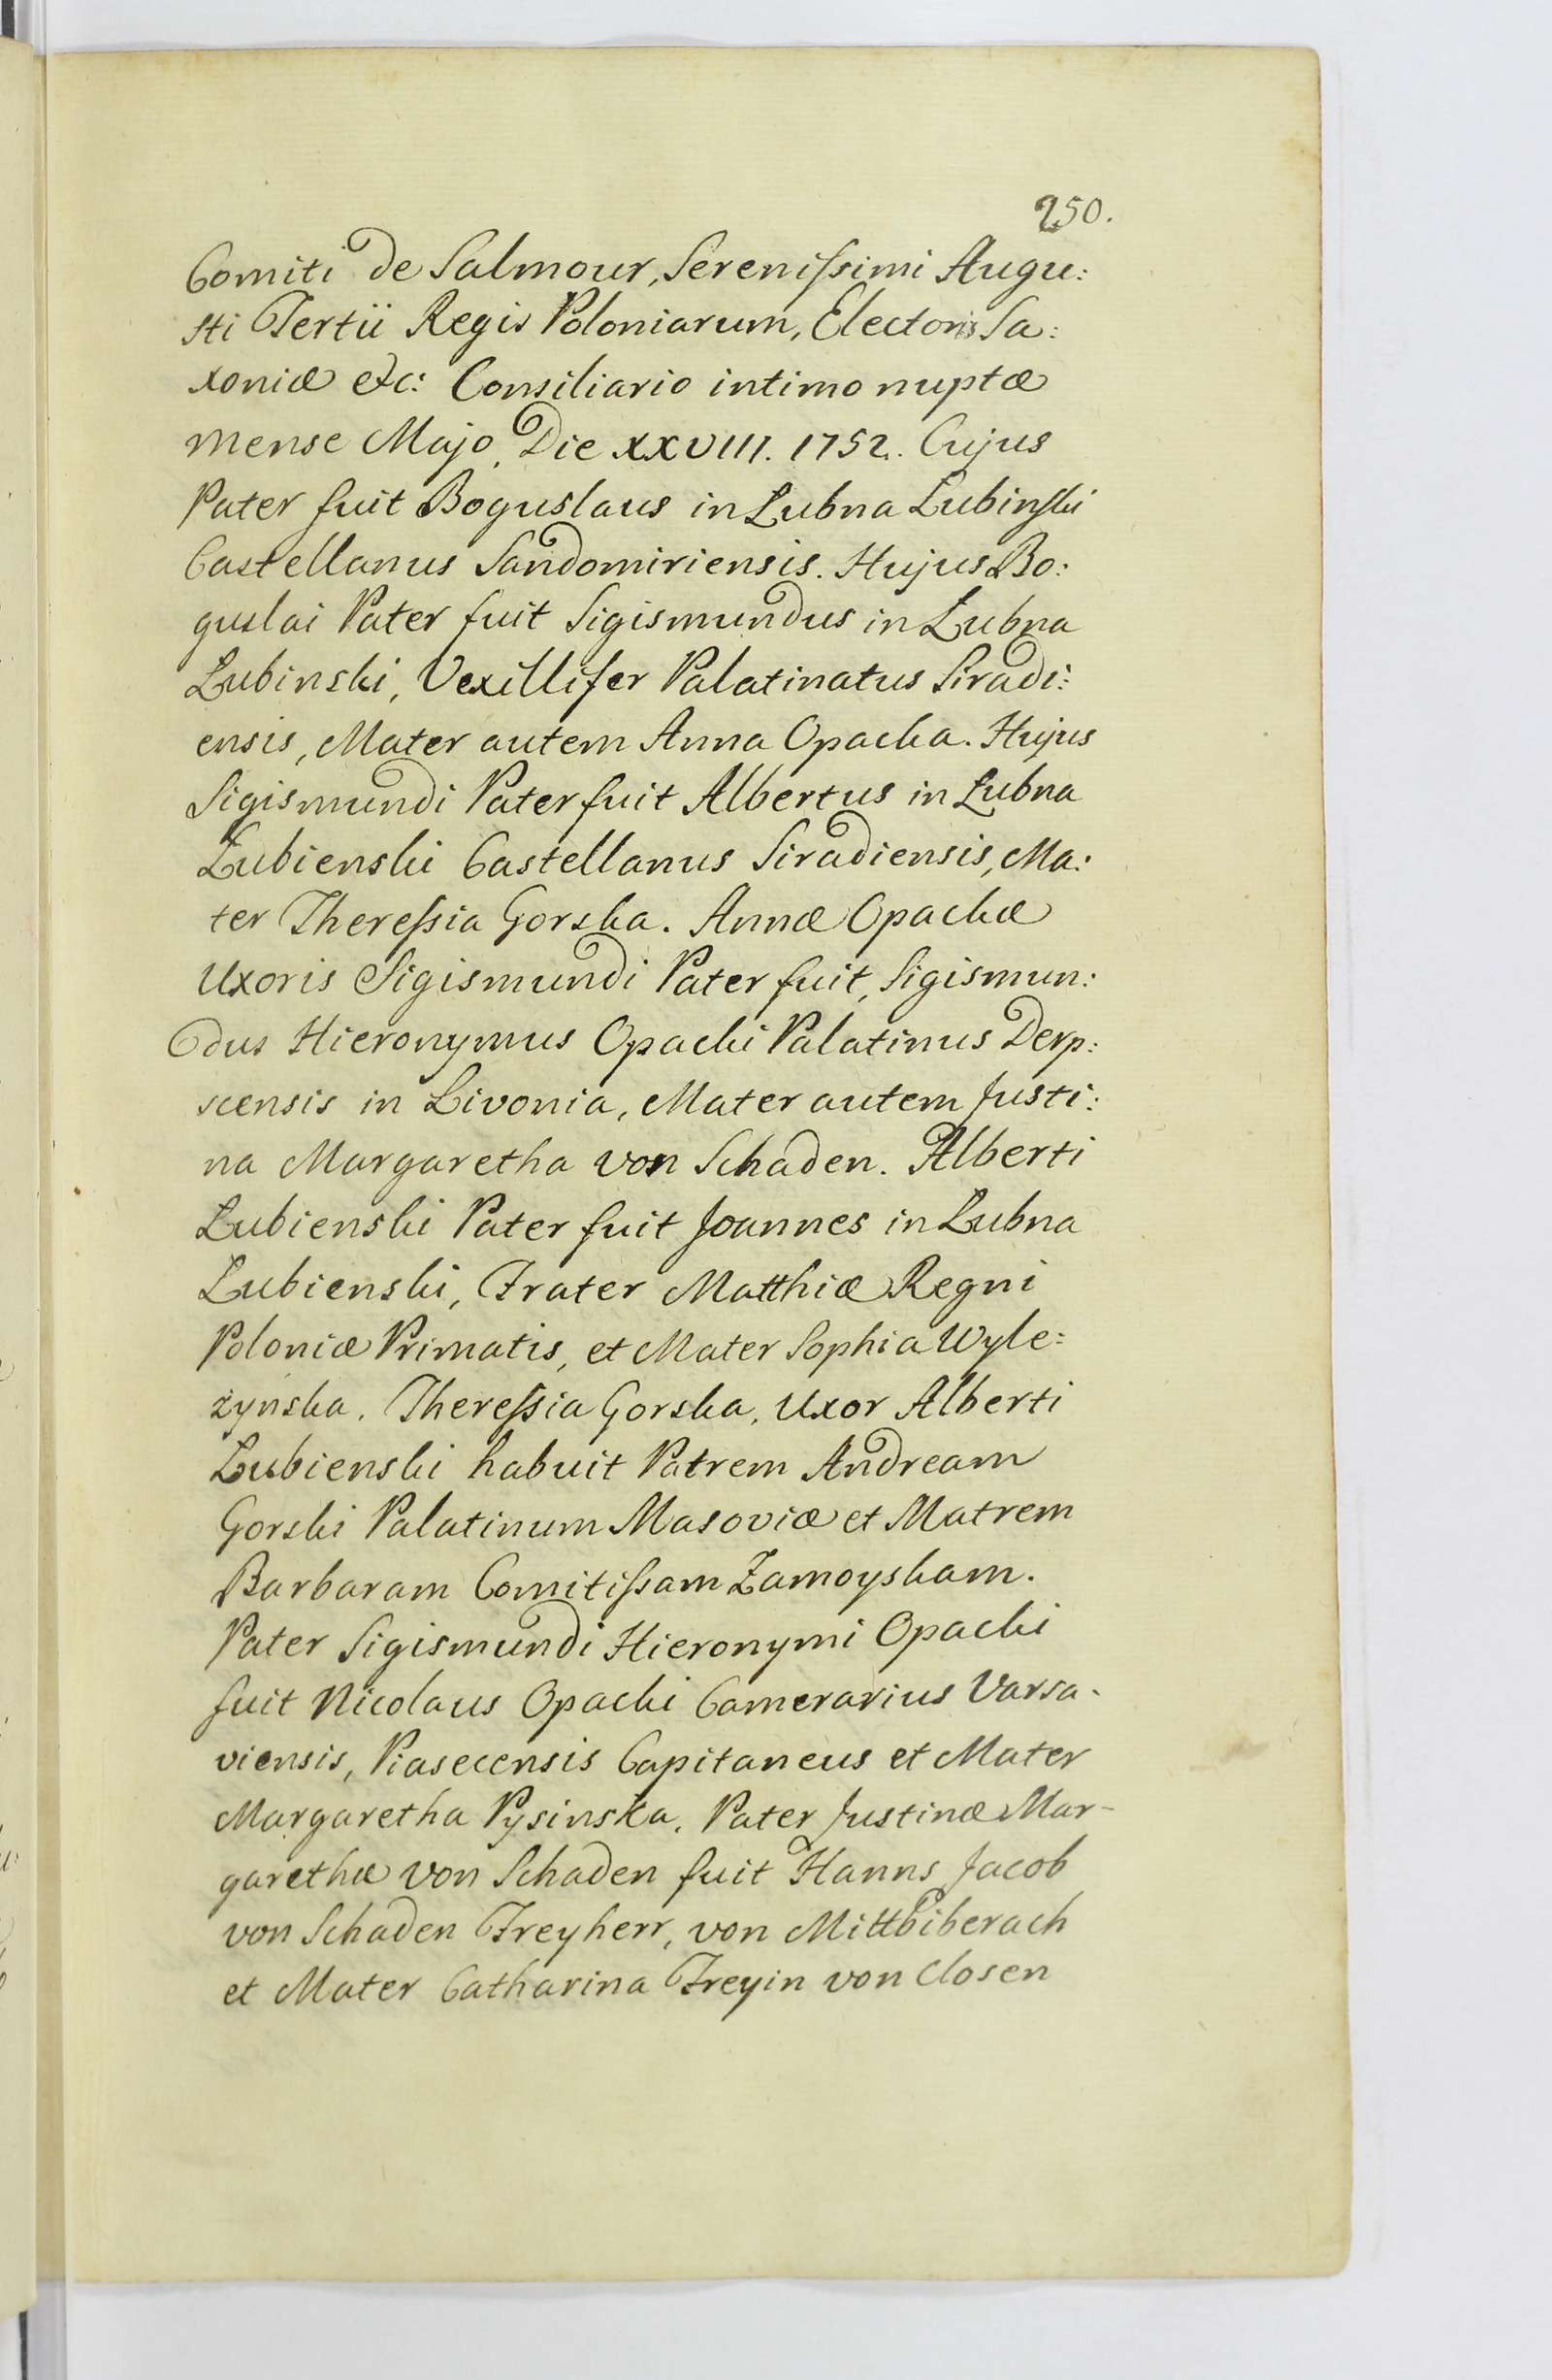 250.
Comiti de Salmour, Serenissimi Augu:
sti Tertii Regis Poloniarum, Electoris Sa:
xoniæ etc: Consiliario intimo nuptæ
mense Majo, Die XXVIII. 1752. Cujus
Pater fuit Boguslaus in Lubna Lubinski
Castellanus Sandomiriensis. Hujus Bo:
guslai Pater fuit Sigismundus in Lubna
Lubinski, Vexillifer Palatinatus Siradi:
ensis, Mater autem Anna Opacka. Hujus
Sigismundi Pater fuit Albertus in Lubna
Lubienski Castellanus Siradiensis, Ma:
ter Theressia Gorska. Annæ Opackæ
Uxoris Sigismundi Pater fuit, Sigismun:
dus Hieronymus Opacki Palatinus Derp:
scensis in Livonia, Mater autem Justi:
na Margaretha von Schaden. Alberti
Lubienski Pater fuit Joannes in Lubna
Lubienski, Frater Matthiæ Regni
Poloniæ Primatis, et Mater Sophia Wyle:
żynska. Theressia Gorska, Uxor Alberti
Lubienski habuit Patrem Andream
Gorski Palatinum Masoviæ et Matrem
Barbaram Comitissam Zamoyskam.
Pater Sigismundi Hieronymi Opacki
fuit Nicolaus Opacki Camerarius Varsa-
viensis, Piasecensis Capitaneus et Mater
Margaretha Pysinska. Pater Justinæ Mar-
garethæ von Schaden fuit Hanns Jacob
von Schaden Freyherr, von Mittbiberach
et Mater Catharina Freyin von Closen